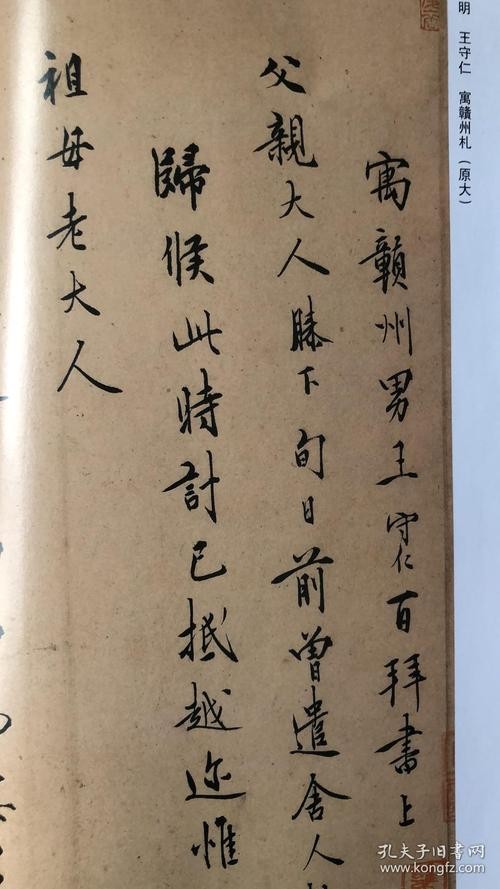 明 王守仁 寓贛州札（原大）
寓贛州男王守仁百拜書上
父親大人膝下旬日前曾遣舍人
歸候此時計已抵越迩惟
祖母老大人
孔夫子旧书网
www.kongfz.com